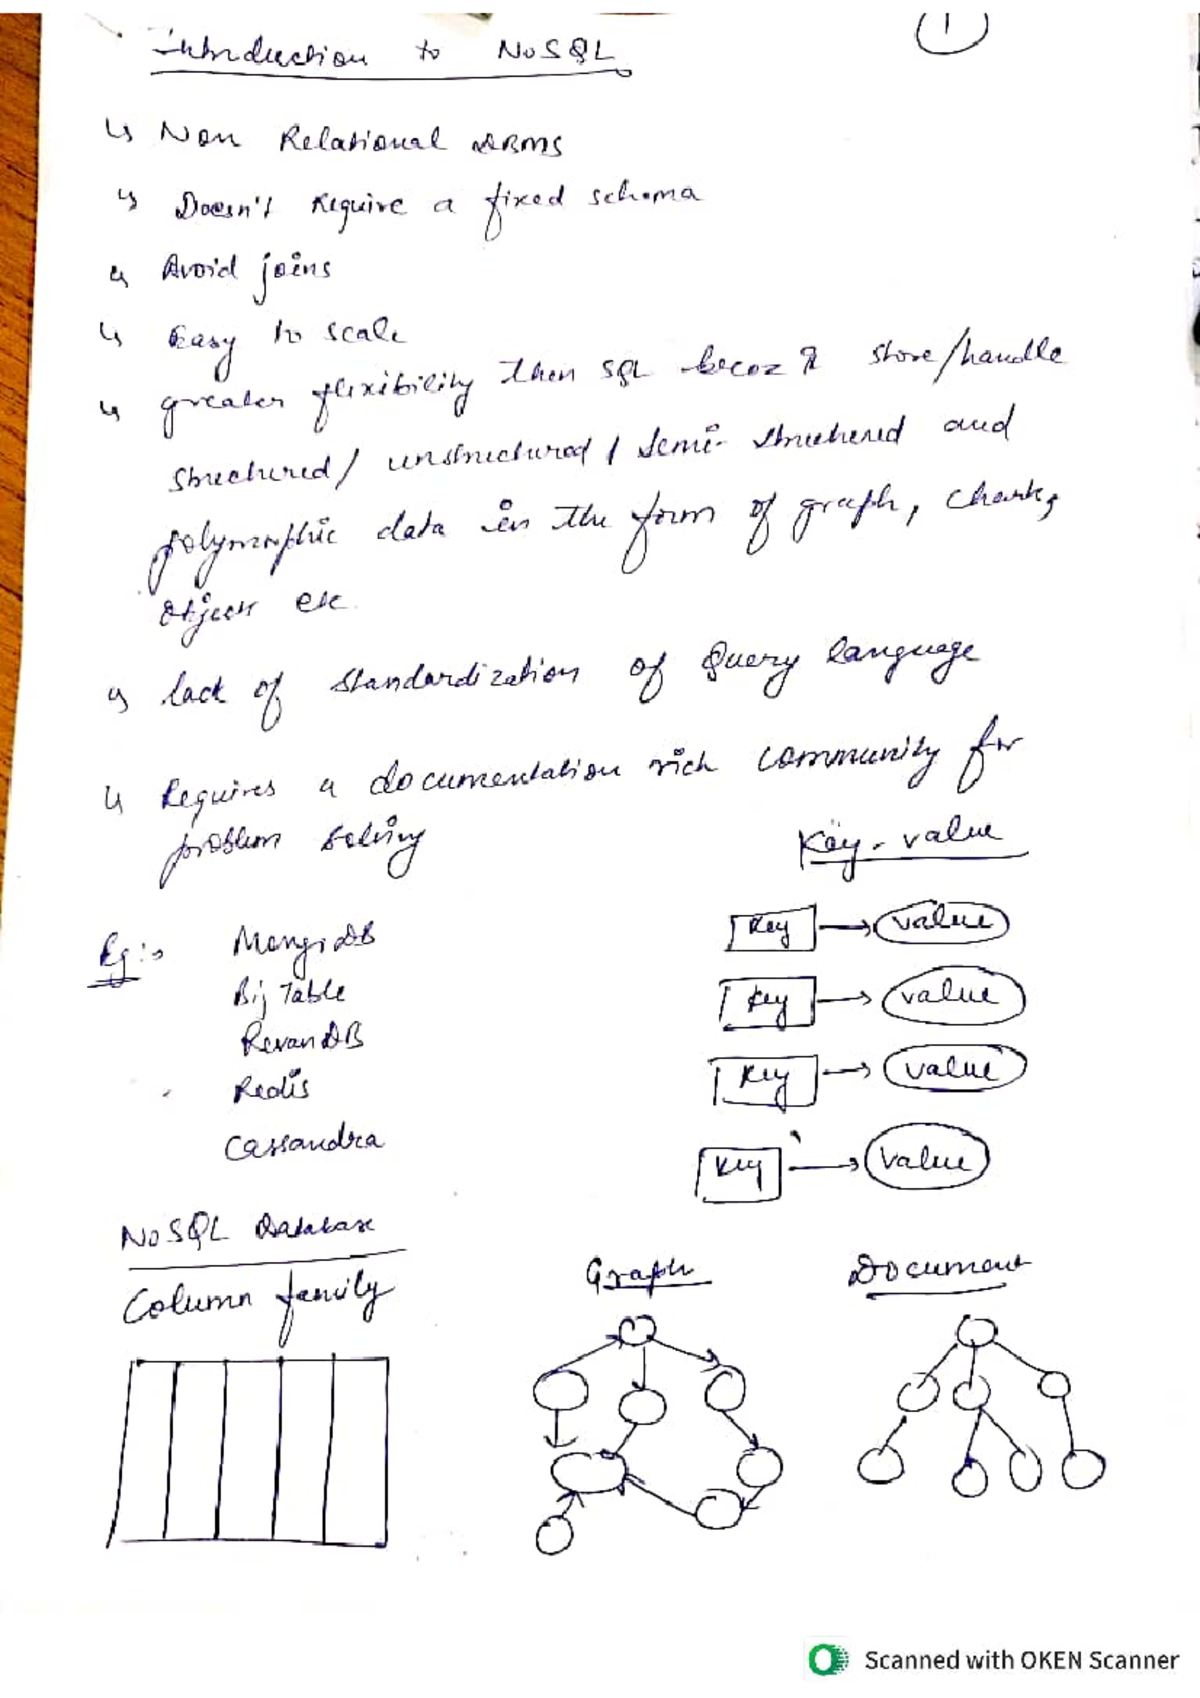 1
Introduction to NoSQL
↳ Non Relational DBMS
↳ Doesn't require a fixed schema
↳ Avoid joins
↳ Easy to scale
↳ greater flexibility then SQL becoz it store/handle
structured/ unstructured / semi-structured and
polymorphic data in the form of graph, chart,
object etc
↳ lack of standardization of Query language
↳ Requires a documentation rich community for
problem solving
Key-value
Eg:→ MongoDB
Big Table
RavanDB
Redis
Cassandra
Key → value
Key → value
Key → value
Key → value
NoSQL Database
Column family
Graph
Document
Scanned with OKEN Scanner